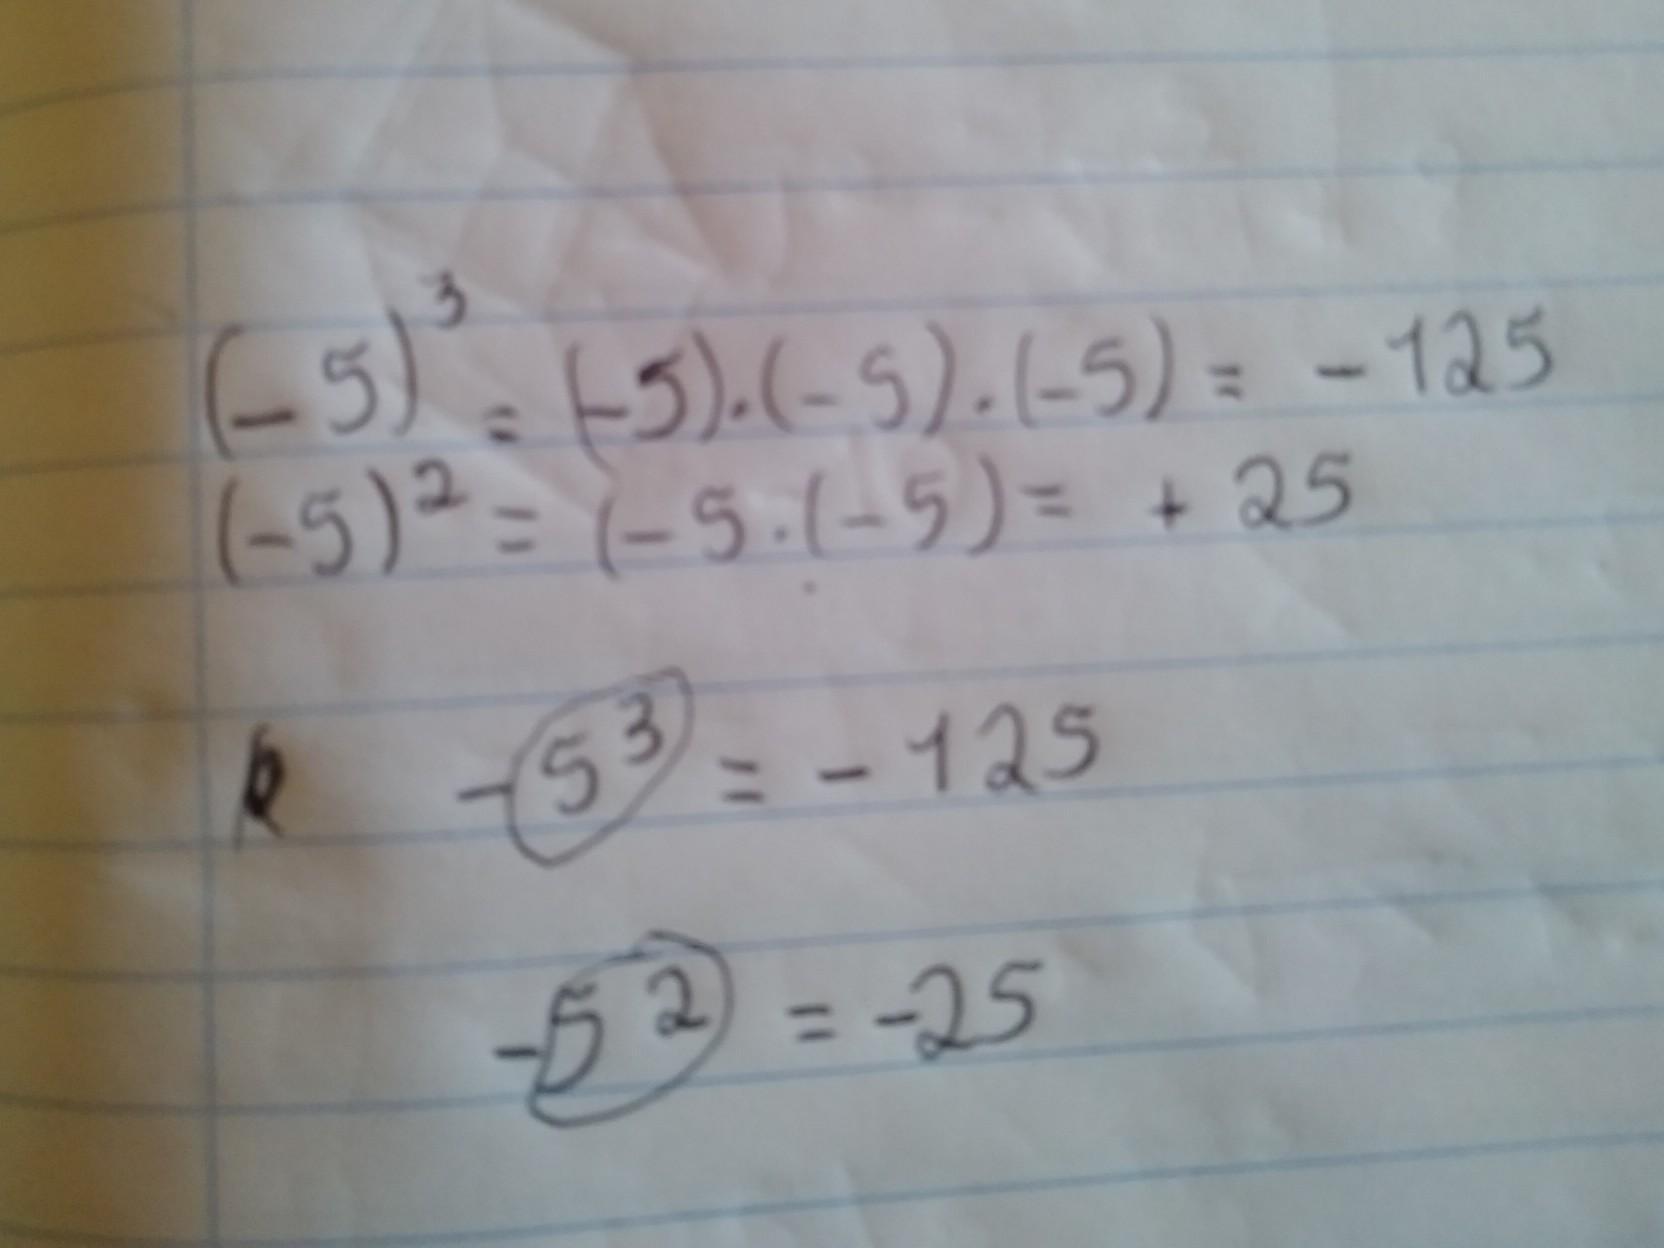 (-5)³ = (-5).(-5).(-5) = -125
(-5)² = (-5.(-5) = + 25
-5³ = -125
-5² = -25